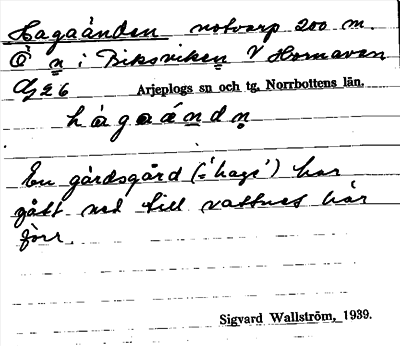 Hagaånden notvarp 200 m.
Ö n i Biksviken V Hornavan
Arjeplogs sn och tg. Norrbottens län.
En gärdsgård (='hage') har
gått ned till vattnet här
förr.
Sigvard Wallström, 1939.